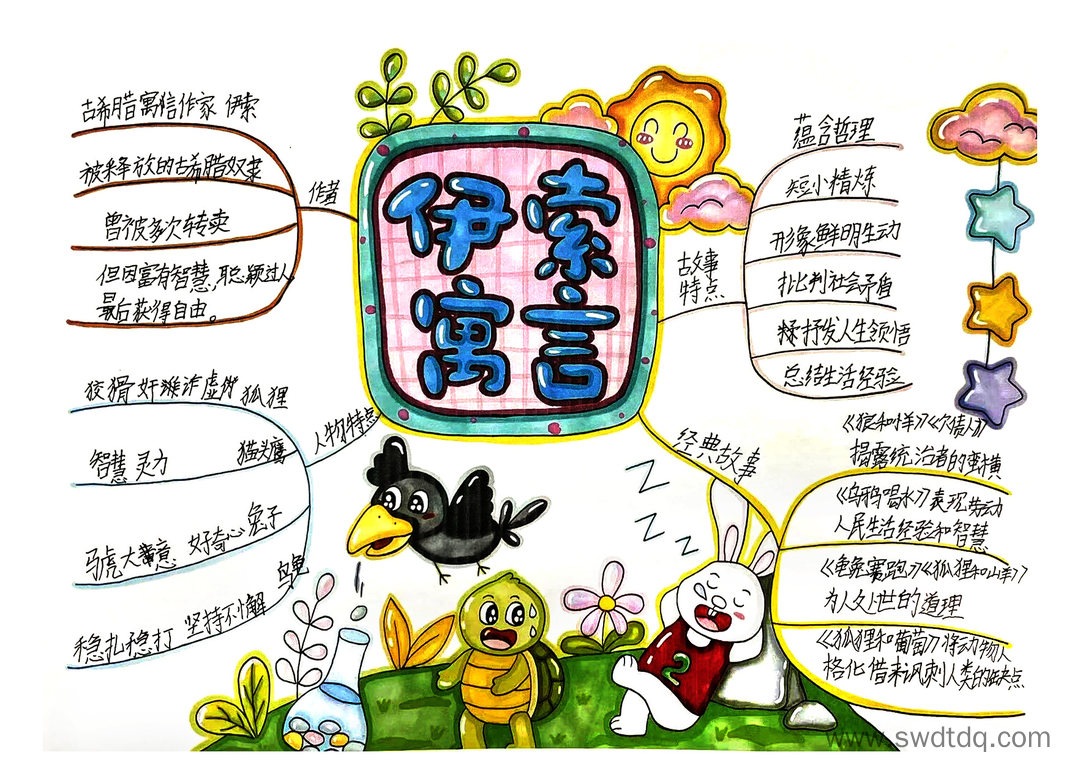 伊索
寓言
作者
古希腊寓言作家 伊索
被释放的古希腊奴隶
曾被多次转卖
但因富有智慧,聪颖过人
最后获得自由。
人物特点
狡猾 奸 诈 虚伪 狐狸
智慧 灵力 猫头鹰
马虎大意 好奇心 兔子
稳扎稳打 坚持不懈 乌龟
故事
特点
蕴含哲理
短小精炼
形象鲜明生动
批判社会矛盾
抒发人生领悟
总结生活经验
经典故事
《狼和羊》
揭露统治者的蛮横
《乌鸦喝水》表现劳动
人民生活经验和智慧
《龟兔赛跑》《狐狸和山羊》
为人处世的道理
《狐狸和葡萄》将动物人
格化借来讽刺人类的缺点
z
z
z
2
www.swdtdq.com